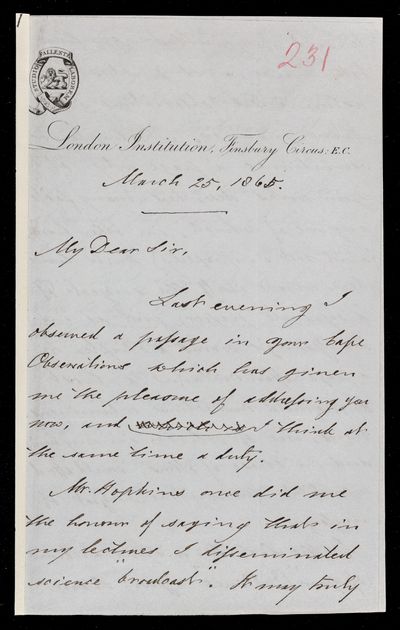 231
STUDIO FALLENTE LABOREM
London Institution, Finsbury Circus, E.C.
March 25, 1865.
My Dear Sir,
Last evening I
observed a passage in your Cape
Observations which has given
me the pleasure of addressing you
now, and I think at
the same time a duty.
Mr. Hopkins once did me
the honour of saying that in
my lectures I disseminated
science "broadcast". It may truly